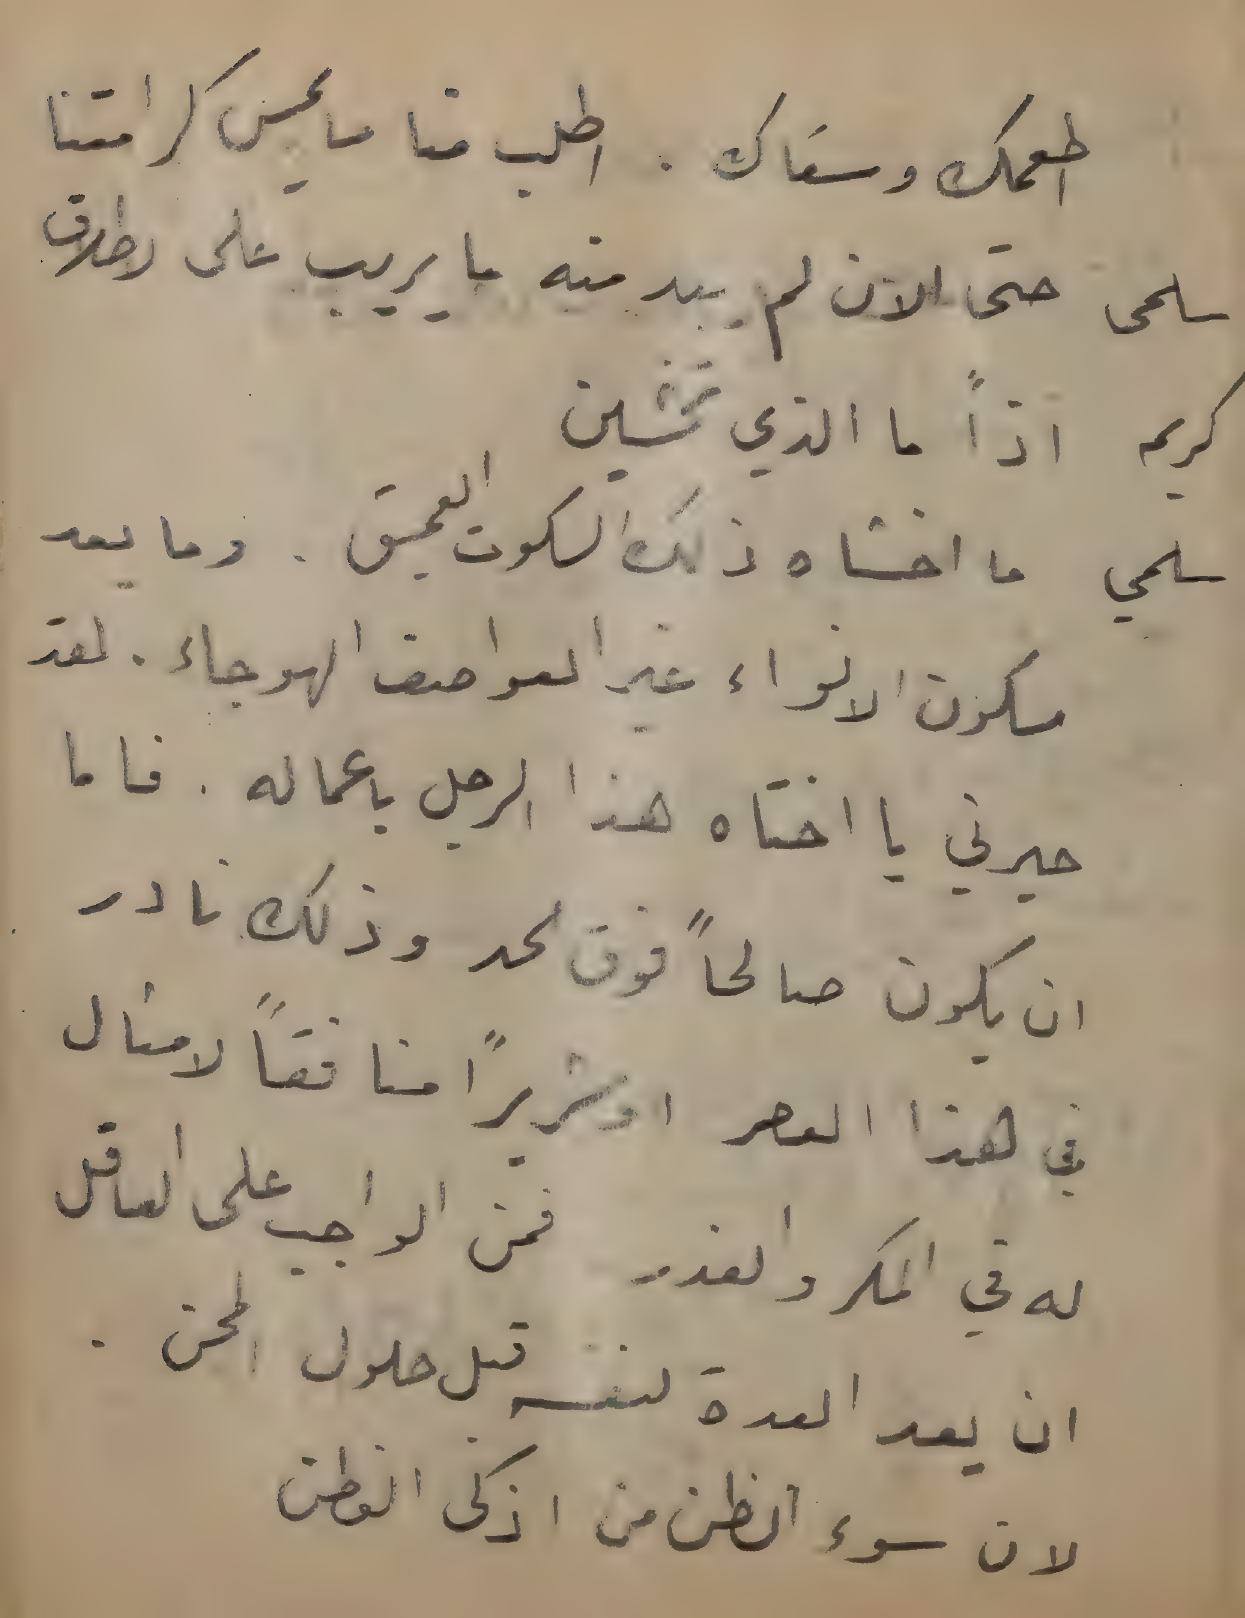 اطعمك وسقاك . اطلب منا ما يمس كرامتنا
سلمى حتى الان لم يبد منه ما يريب على لاطلاق
كريمه اذاً ما الذي تخشين
سلمي ما اخشاه ذلك السكوت العميق . وما بعد
سكون الانواء غير العواصف الهوجاء . لقد
حيرني يا اختاه هذا الرجل باعماله . فاما
ان يكون صالحاً فوق لحد وذلك نادر
في هذا العصر او شريراً منافقاً لا مثال
له في المكر والغدر فمن الواجب على العاقل
ان يعد العدة لنفسه قبل حلول المحن .
لان سوء الظن من اذكى الفطن